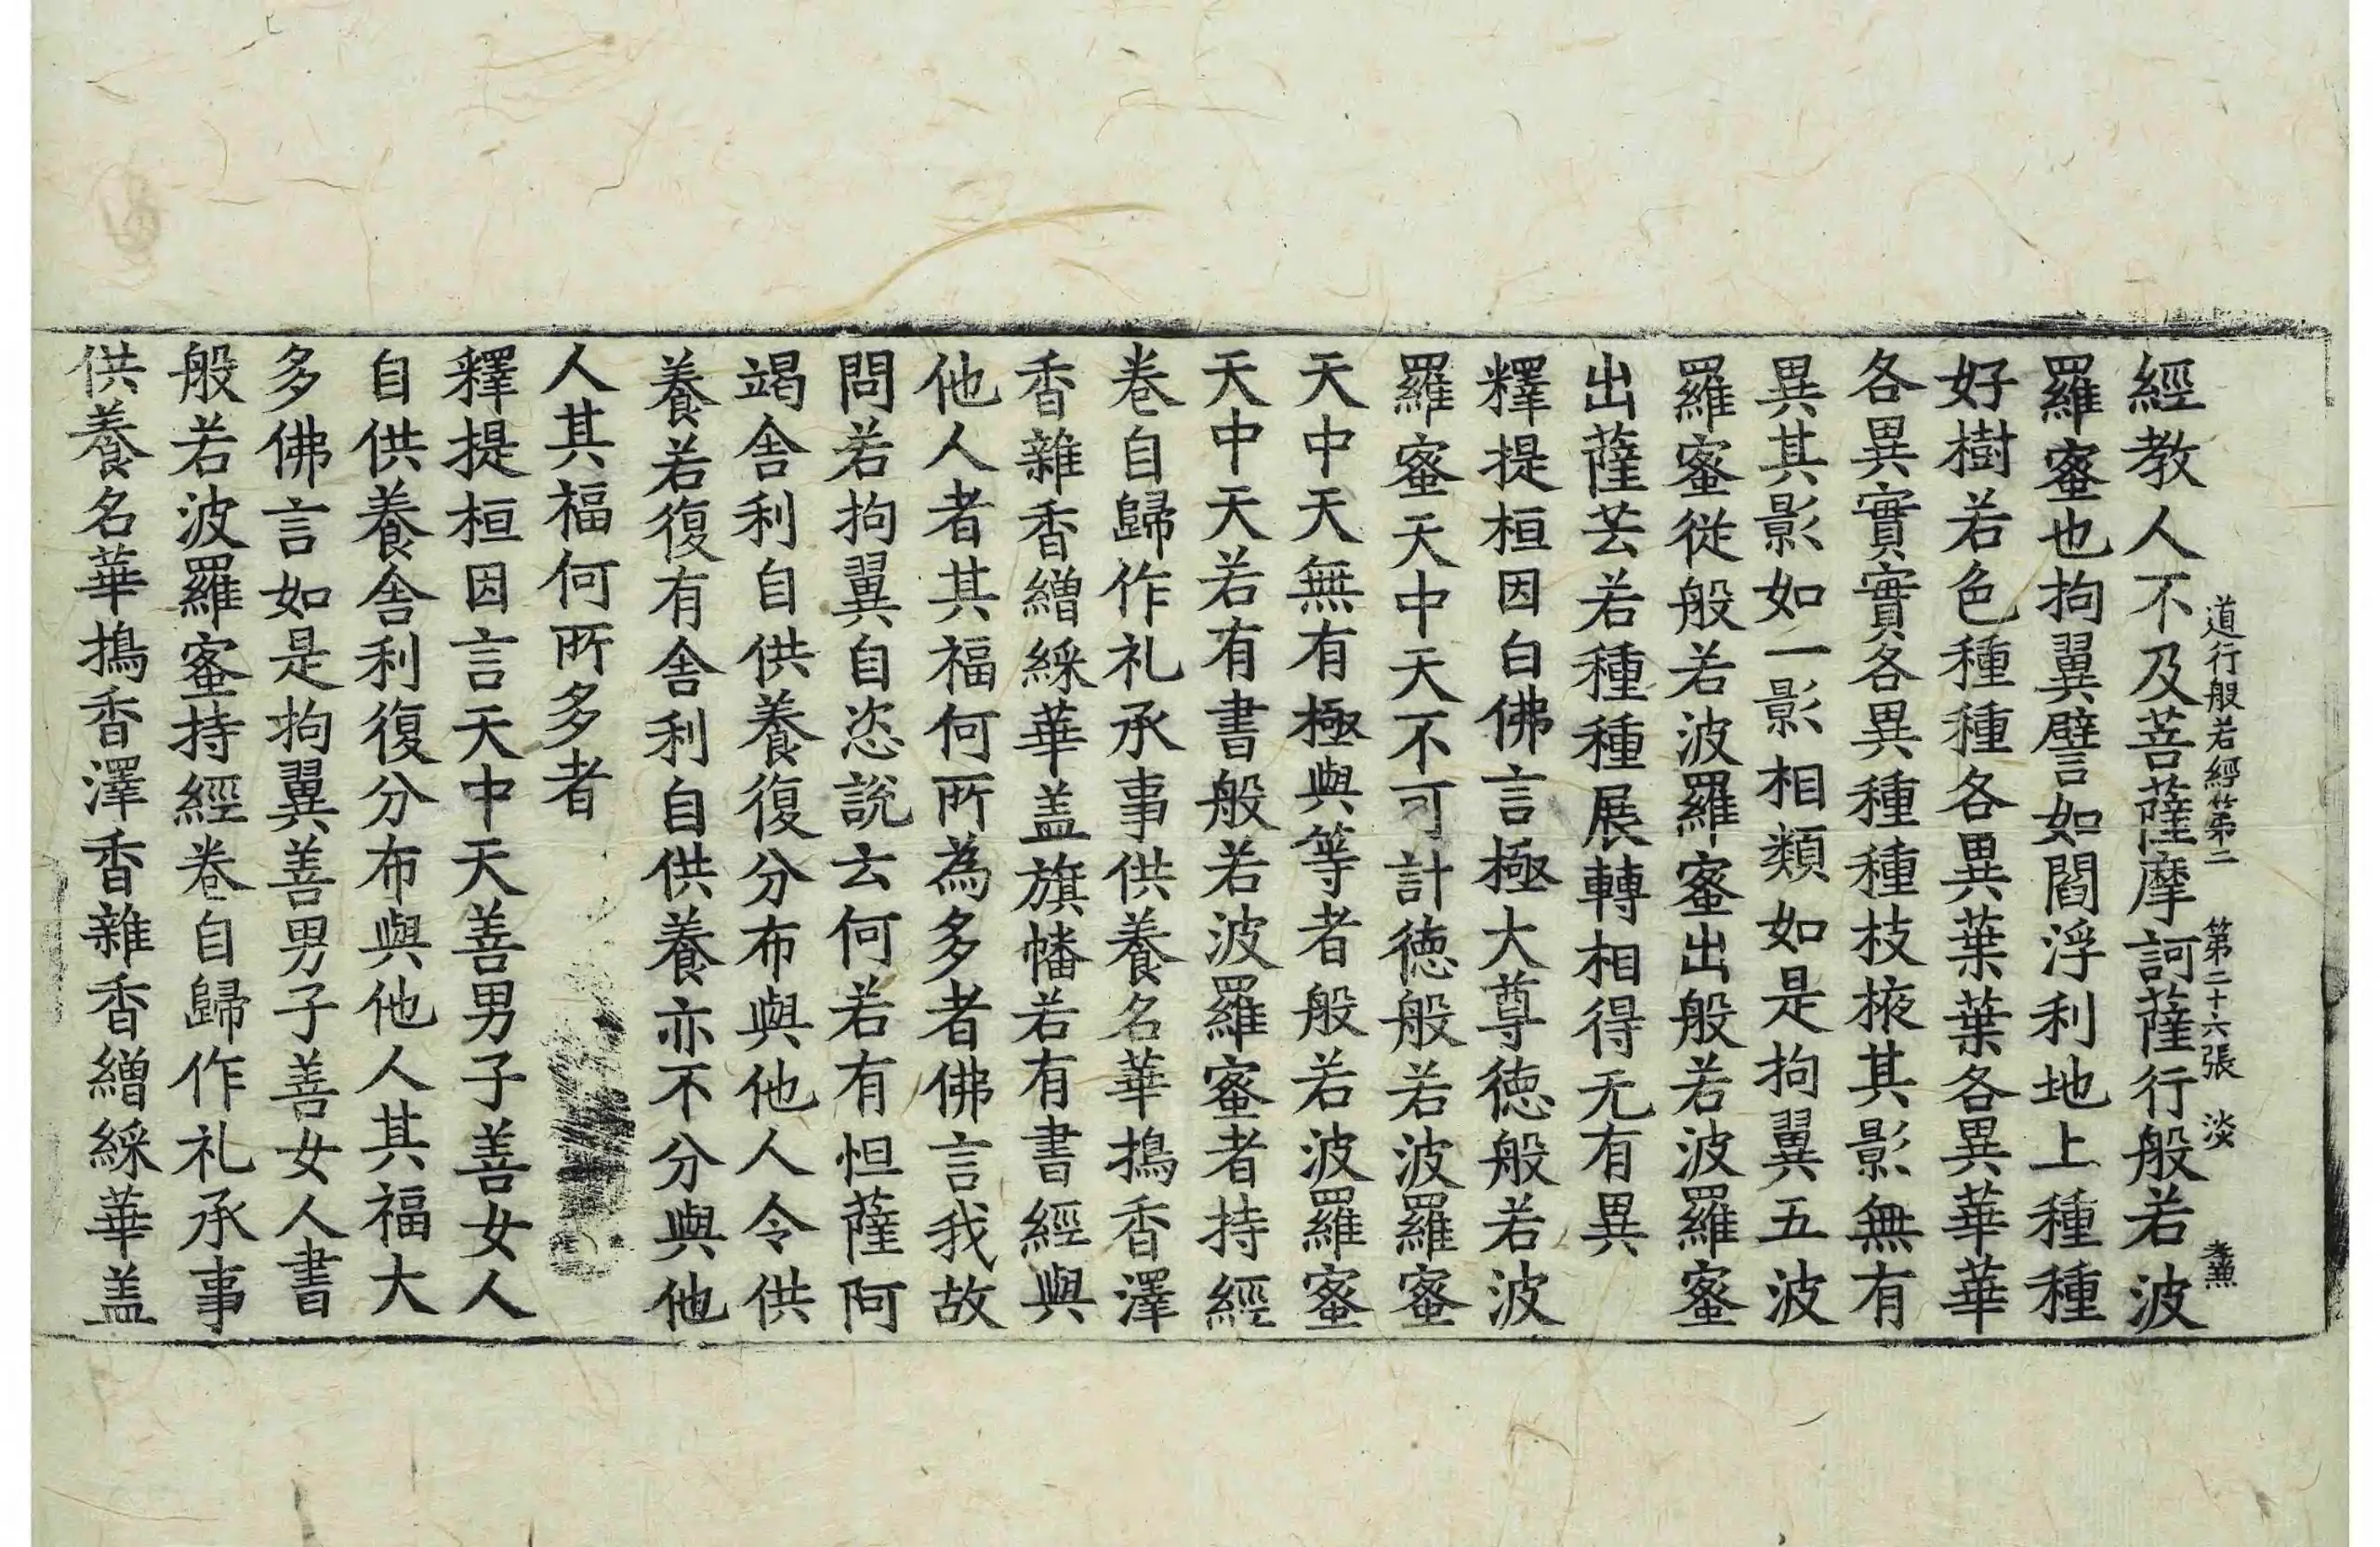 道行般若經第二 第二十六張 淡 孝兼
經教人不及菩薩摩訶薩行般若波
羅蜜也拘翼譬如閻浮利地上種種
好樹若色種種各異葉葉各異華華
各異實實各異種種枝掖其影無有
異其影如一影相類如是拘翼五波
羅蜜從般若波羅蜜出般若波羅蜜
出薩芸若種種展轉相得无有異
釋提桓因白佛言極大尊德般若波
羅蜜天中天不可計德般若波羅蜜
天中天無有極與等者般若波羅蜜
天中天若有書般若波羅蜜者持經
卷自歸作礼承事供養名華搗香澤
香雜香繒綵華盖旗幡若有書經與
他人者其福何所為多者佛言我故
問若拘翼自恣說云何若有怛薩阿
竭舍利自供養復分布與他人令供
養若復有舍利自供養亦不分與他
人其福何所多者
釋提桓因言天中天善男子善女人
自供養舍利復分布與他人其福大
多佛言如是拘翼善男子善女人書
般若波羅蜜持經卷自歸作礼承事
供養名華搗香澤香雜香繒綵華盖